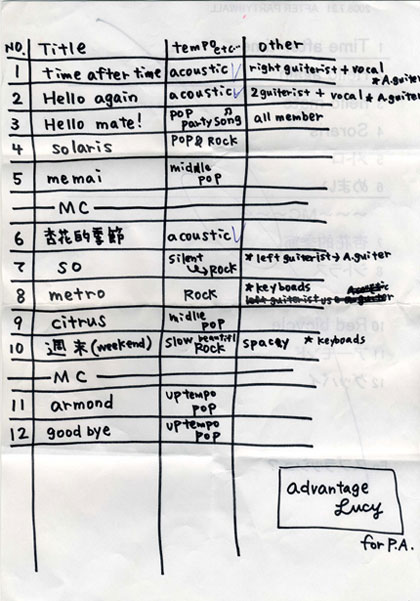 NO. Title tempo etc... other
1 time after time acoustic ✓ right guiterist + vocal * A.guiter
2 Hello again acoustic ✓ 2 guiterist + vocal * A.guiter
3 Hello mate! pop party song ♫ all member
4 solaris POP & Rock
5 memai middle pop
MC
6 杏花的季節 acoustic ✓
7 so silent → Rock * left guiterist → A.guiter
8 metro Rock * keyboads
9 citrus midlle pop
10 週末(weekend) slow beautifl Rock spacey * keyboads
MC
11 armond up tempo pop
12 good bye up tempo pop
advantage
Lucy
for P.A.